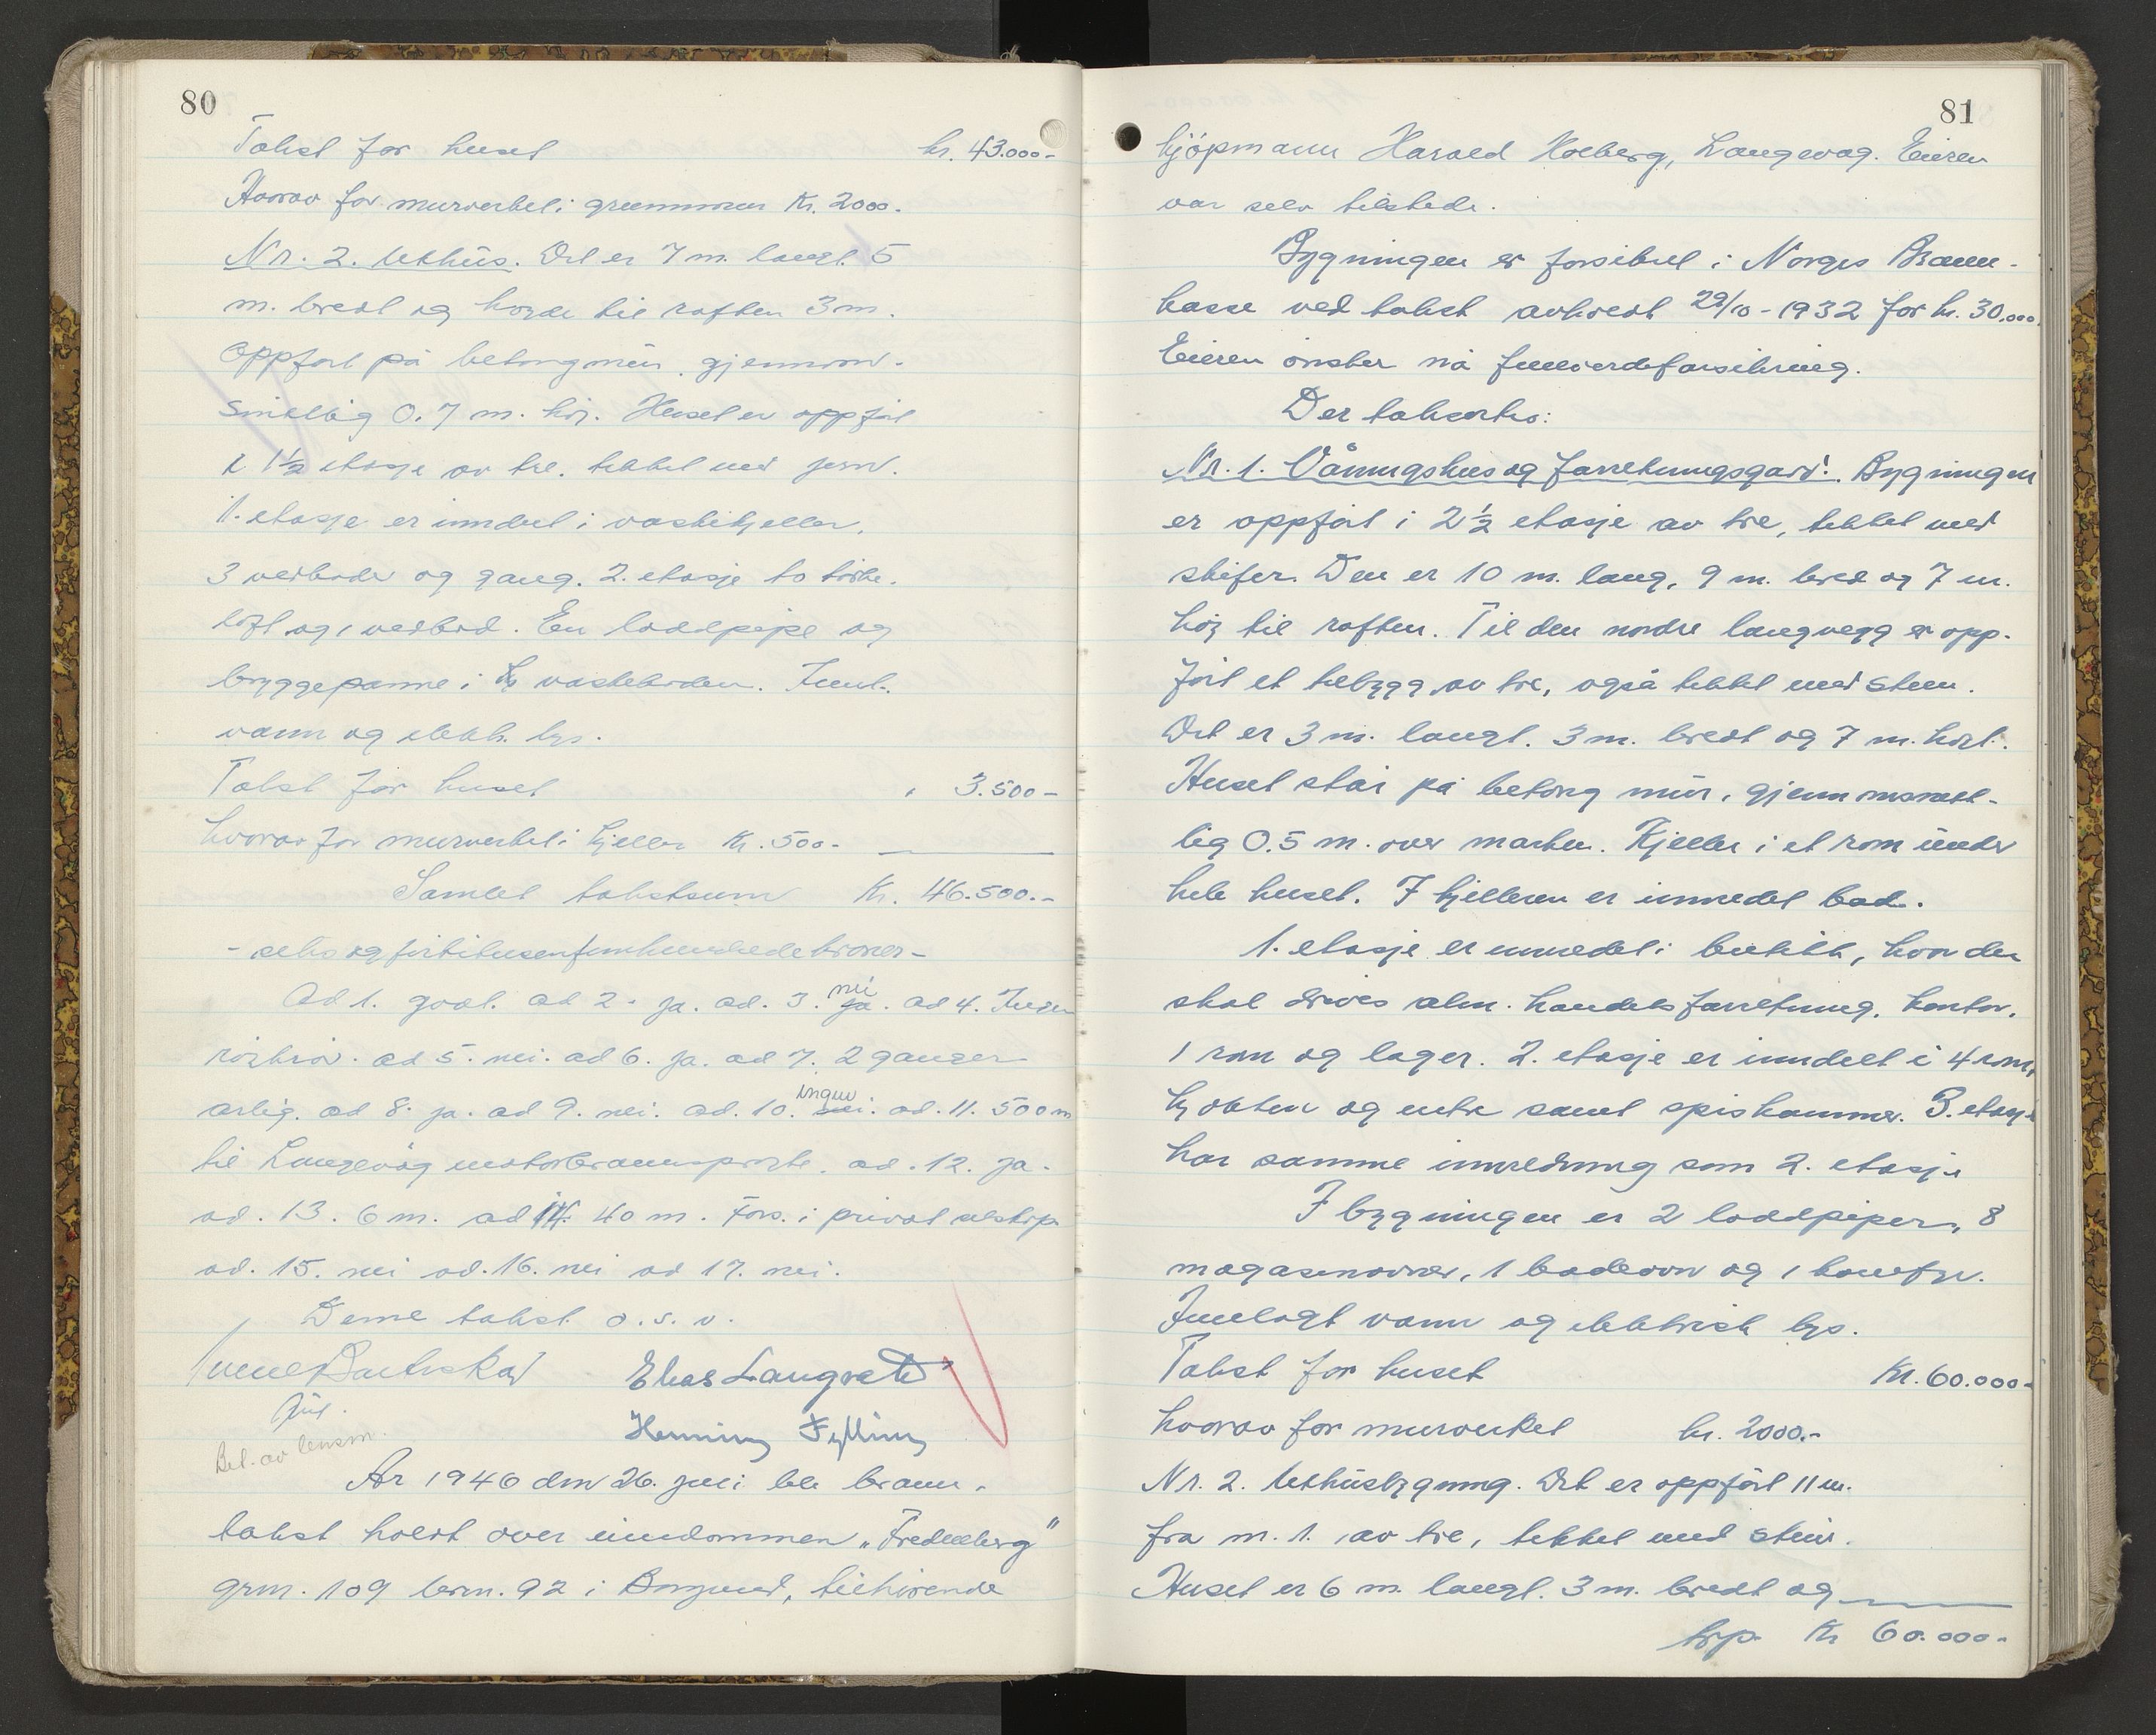 80
Takst for huset kr. 43.000-
Hvorav for murverket i grunnmuren Kr. 2000.-
Nr. 2. Uthus. Det er 7 m. langt. 5
m. bredt og høyde til raften 3 m.
Oppført på betongmur, gjennom-
snittlig 0.7 m. høy. Huset er oppført
i 1½ etasje av tre, tekket med jern.
1. etasje er inndelt i vaskekjeller,
3 vedboder og gang. 2. etasje to tørke-
loft og 1 vedbod. En loddpipe og
bryggepanne i vaskeboden. Innl.
vann og elektr. lys.
Takst for huset " 3.500-
hvorav for murverket i kjeller Kr. 500.-
Samlet takstsum Kr. 46.500.-
- seksogførtitusenfemhundrede kroner -
Ad 1. godt. ad 2. ja. ad. 3. ja. nei ad 4. Ingen
rørbrov. ad 5. nei. ad 6. ja. ad 7. 2 ganger
årlig. ad 8. ja. ad 9. nei. ad. 10. nei. ingen ad. 11. 500 m
til Langevåg motorbrannsprøyte. ad. 12. ja.
ad. 13. 6 m. ad 14. 40 m. Fors. i privat selskap
ad. 15. nei ad. 16. nei ad 17. nei.
Denne takst o.s.v.
Elias Langset
Henning Fylling
Bet. av lensm.
År 1946 den 26. juli ble brann-
takst holdt over eiendommen „Fredheberg"
grm. 109 brm. 92 i Borgund, tilhørende
81
kjøpmann Harald Hoeberg, Langevåg. Eieren
var selv tilstede.
Bygningen er forsikret i Norges Brann-
kasse ved takst avholdt 29/10 - 1932 for kr. 30.000.
Eieren ønsker nå fullverdeforsikring.
Der taksertes:
Nr. 1. Våningshus og forretningsgård. Bygningen
er oppført i 2½ etasje av tre, tekket med
skifer. Den er 10 m. lang, 9 m. bred og 7 m.
høy til raften. Til den nordre langvegg er opp-
ført et tilbygg av tre, også tekket med sten.
Det er 3 m. langt. 3 m. bredt og 7 m. høyt.
Huset står på betong mur, gjennomsnitt-
lig 0.5 m. over marken. Kjeller i et rom under
hele huset. I kjelleren er innredet bad.
1. etasje er innredet i butikk, hvor der
skal drives alm. handelsforretning, kontor,
1 rom og lager. 2. etasje er inndelt i 4 rom,
kjøkken og entre samt spiskammer. 3. etasje
har samme innredning som 2. etasje
I bygningen er 2 loddpiper, 8
magasinovner, 1 badeovn og 1 komfyr.
Innlagt vann og elektrisk lys.
Takst for huset Kr. 60.000-
hvorav for murverket kr. 2000.-
Nr. 2. Uthusbygning. Det er oppført 11 m.
fra nr. 1. av tre, tekket med sten.
Huset er 6 m. langt. 3 m. bredt og
trsp. Kr 60.000-